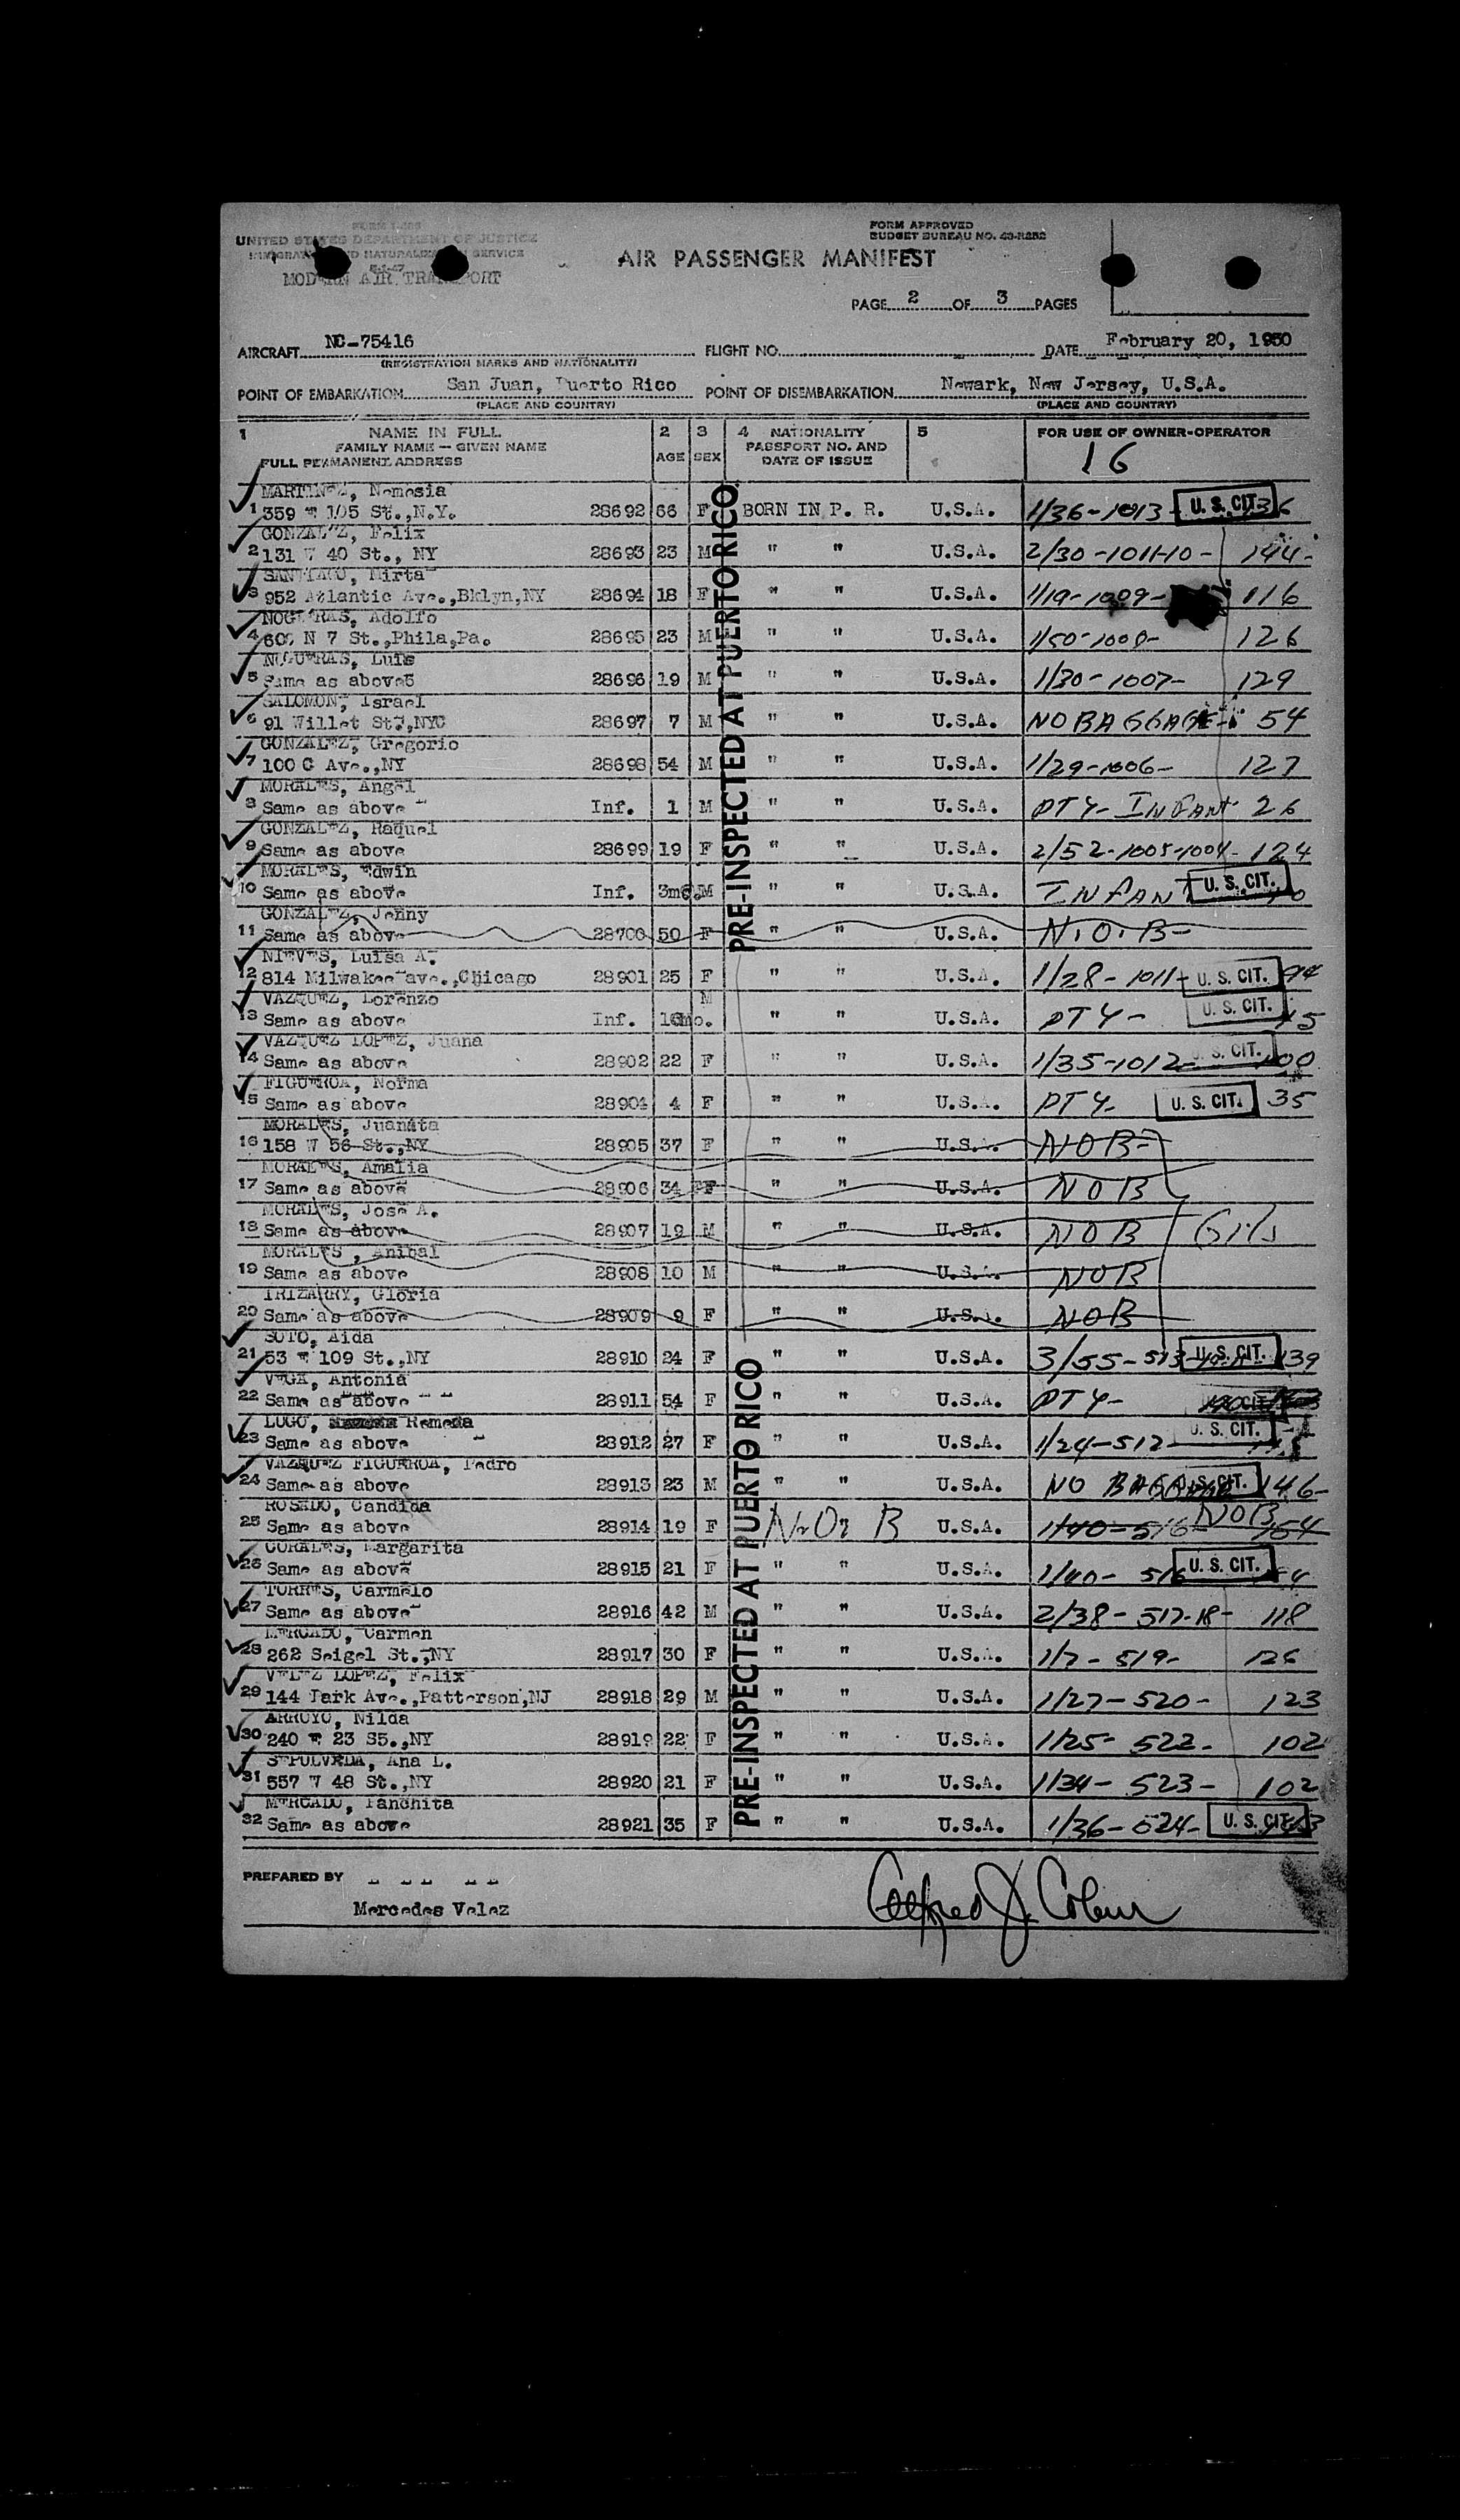 FORM I-466
UNITED STATES DEPARTMENT OF JUSTICE
IMMIGRATION AND NATURALIZATION SERVICE
MODERN AIR TRANSPORT
FORM APPROVED
BUDGET BUREAU NO. 43-R252
AIR PASSENGER MANIFEST
PAGE 2 OF 3 PAGES
AIRCRAFT NC-75416 FLIGHT NO. DATE February 20, 1950
(REGISTRATION MARKS AND NATIONALITY)
POINT OF EMBARKATION San Juan, Puerto Rico POINT OF DISEMBARKATION Newark, New Jersey, U.S.A.
(PLACE AND COUNTRY) (PLACE AND COUNTRY)
1 NAME IN FULL 2 3 4 NATIONALITY 5 FOR USE OF OWNER-OPERATOR
FAMILY NAME — GIVEN NAME AGE SEX PASSPORT NO. AND 16
FULL PERMANENT ADDRESS DATE OF ISSUE
PRE-INSPECTED AT PUERTO RICO
MARTINEZ, Nemesia
1 359 E 105 St.,N.Y. 28692 66 F BORN IN P. R. U.S.A. 1/36-1013- U. S. CIT. 136
GONZALEZ, Felix
2 131 W 40 St., NY 28693 23 M " " U.S.A. 2/30-1011-10- 144-
SANTIAGO, Mirta
3 952 Atlantic Ave.,Bklyn,NY 28694 18 F " " U.S.A. 1/19-1009- 116
NOGUERAS, Adolfo
4 600 N 7 St.,Phila,Pa. 28695 23 M " " U.S.A. 1/50-1008- 126
NOGUERAS, Luis
5 Same as above 28696 19 M " " U.S.A. 1/30-1007- 129
SALOMON, Israel
6 91 Willet St.,NYC 28697 7 M " " U.S.A. NO BAGGAGE- 54
GONZALEZ, Gregorio
7 100 C Ave.,NY 28698 54 M " " U.S.A. 1/29-1006- 127
MORALES, Angel
8 Same as above Inf. 1 M " " U.S.A. PTY- INFANT 26
GONZALEZ, Raquel
9 Same as above 28699 19 F " " U.S.A. 2/52-1005-1004- 124
MORALES, Edwin
10 Same as above Inf. 3mo. M " " U.S.A. INFANT U. S. CIT.
GONZALEZ, Jenny
11 Same as above 28700 50 F " " U.S.A. N.O.B-
NIEVES, Luisa A.
12 814 Milwakee ave.,Chicago 28901 25 F " " U.S.A. 1/28-1011- U. S. CIT. 94
VAZQUEZ, Lorenzo M
13 Same as above Inf. mo. " " U.S.A. PTY- U. S. CIT. 15
VAZQUEZ LOPEZ, Juana
14 Same as above 28902 22 F " " U.S.A. 1/35-1012- U. S. CIT. 100
FIGUEROA, Norma
15 Same as above 28904 4 F " " U.S.A. PTY- U. S. CIT. 35
MORALES, Juanita
16 158 W 56 St.,NY 28905 37 F " " U.S.A. NOB-
MORALES, Amalia
17 Same as above 28906 34 F " " U.S.A. NOB
MORALES, Jose A.
18 Same as above 28907 19 M " " U.S.A. NOB
MORALES, Anibal
19 Same as above 28908 10 M " " U.S.A. NOB
IRIZARRY, Gloria
20 Same as above 28909 9 F " " U.S.A. NOB
PRE-INSPECTED AT PUERTO RICO
SOTO, Aida
21 53 E 109 St.,NY 28910 24 F " " U.S.A. 3/55-513- U. S. CIT. 139
VEGA, Antonia
22 Same as above 28911 54 F " " U.S.A. PTY-
LUGO, Remeda
23 Same as above 28912 27 F " " U.S.A. 1/24-512- U. S. CIT.
VAZQUEZ FIGUEROA, Pedro
24 Same as above 28913 23 M " " U.S.A. NO BAGGAGE U. S. CIT. 146-
ROSADO, Candida
25 Same as above 28914 19 F N.O. B U.S.A. 1/40-516- NOB 154
CORALES, Margarita
26 Same as above 28915 21 F " " U.S.A. 1/40- 516 U. S. CIT.
TORRES, Carmelo
27 Same as above 28916 42 M " " U.S.A. 2/38-517-18- 118
MERCADO, Carmen
28 262 Seigel St.,NY 28917 30 F " " U.S.A. 1/7-519- 126
VELEZ LOPEZ, Felix
29 144 Park Ave.,Patterson,NJ 28918 29 M " " U.S.A. 1/27-520- 123
ARROYO, Nilda
30 240 E 23 S5.,NY 28919 22 F " " U.S.A. 1/25- 522- 102
SEPULVEDA, Ana L.
31 557 W 48 St.,NY 28920 21 F " " U.S.A. 1/34- 523- 102
MERCADO, Panchita
32 Same as above 28921 35 F " " U.S.A. 1/36-524- U. S. CIT.
PREPARED BY
Mercedes Velez